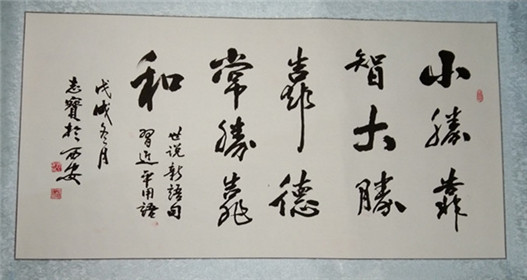 小勝靠
智大勝
靠德
常勝靠
和
世说新語句
習近平用語
戊戌冬月
志寳於西安